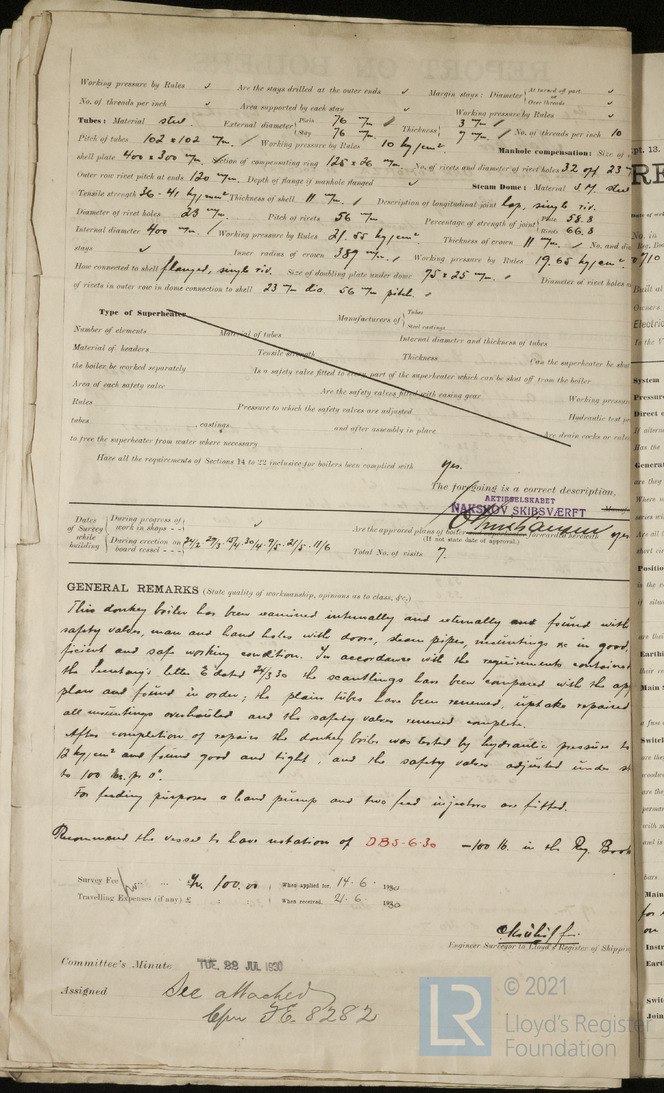 Working pressure by Rules ✓ Are the stays drilled at the outer ends ✓ Margin stays: Diameter { At turned off part, ✓ or Over threads ✓
No. of threads per inch ✓ Area supported by each stay ✓ Working pressure by Rules ✓
Tubes: Material steel External diameter { Plain 76 m/m Stay 76 m/m Thickness { 3 m/m 7 m/m No. of threads per inch 10
Pitch of tubes 102 x 102 m/m. Working pressure by Rules 10 kg/cm² Manhole compensation: Size of
shell plate 400 x 300 m/m. Section of compensating ring 125 x 26 m/m. No. of rivets and diameter of rivet holes 32 off 23
Outer row rivet pitch at ends 120 m/m. Depth of flange if manhole flanged ✓ Steam Dome: Material S.M. steel
Tensile strength 36 - 41 kg/mm² Thickness of shell 11 m/m. Description of longitudinal joint lap, single riv.
Diameter of rivet holes 23 m/m Pitch of rivets 56 m/m Percentage of strength of joint { Plate 58.8 Rivets 66.8
Internal diameter 400 m/m. Working pressure by Rules 21.55 kg/cm² Thickness of crown 11 m/m. No. and
stays ✓ Inner radius of crown 389 m/m. Working pressure by Rules 19.65 kg/cm².
How connected to shell flanged, single riv. Size of doubling plate under dome 75 x 25 m/m. Diameter of rivet holes
of rivets in outer row in dome connection to shell 23 m/m dia. 56 m/m pitch.
Type of Superheater Manufacturers of { Tubes Steel castings
Number of elements Material of tubes Internal diameter and thickness of tubes
Material of headers Tensile strength Thickness Can the superheater be shut
the boiler be worked separately Is a safety valve fitted to every part of the superheater which can be shut off from the boiler
Area of each safety valve Are the safety valves fitted with easing gear Working pressure
Rules Pressure to which the safety valves are adjusted Hydraulic test
tubes , castings and after assembly in place Are drain cocks or
to free the superheater from water where necessary
Have all the requirements of Sections 14 to 22 inclusive for boilers been complied with yes.
The foregoing is a correct description,
AKTIESELSKABET
NAKSKOV SKIBSVÆRFT
Dates of Survey while building { During progress of work in shops - - ✓ During erection on board vessel - - - 24/2 29/3 15/4 30/4 9/5 21/5 11/6
Are the approved plans of boiler and superheater forwarded herewith yes
(If not state date of approval.)
Total No. of visits 7.
GENERAL REMARKS (State quality of workmanship, opinions as to class, &c.)
This donkey boiler has been examined internally and externally and found with
safety valves, man and hand holes with doors, steam pipes, mountings &c in good,
ficient and safe working condition. In accordance with the requirements contained
the Secretary's letter E dated 24/3 30 the scantlings have been compared with the
plan and found in order; the plain tubes have been renewed, uptake repaired
all mountings overhauled and the safety valves renewed complete.
After completion of repairs the donkey boiler was tested by hydraulic pressure to
12 kg/cm² and found good and tight, and the safety valves adjusted under
to 100 lbs. pr □".
For feeding purposes a hand pump and two feed injectors are fitted.
Recommend the vessel to have notation of DBS-6-30 -100 lb. in the Reg. Book
Survey Fee ... ... Kr. 100.00 When applied for, 14 - 6 - 1930
Travelling Expenses (if any) £ : : When received, 21 - 6 1930
Engineer Surveyor to Lloyd's Register of Shipping
Committee's Minute TUE. 29 JUL 1930
Assigned See attached
F.E. 8282
© 2021
LR
Lloyd's Register
Foundation